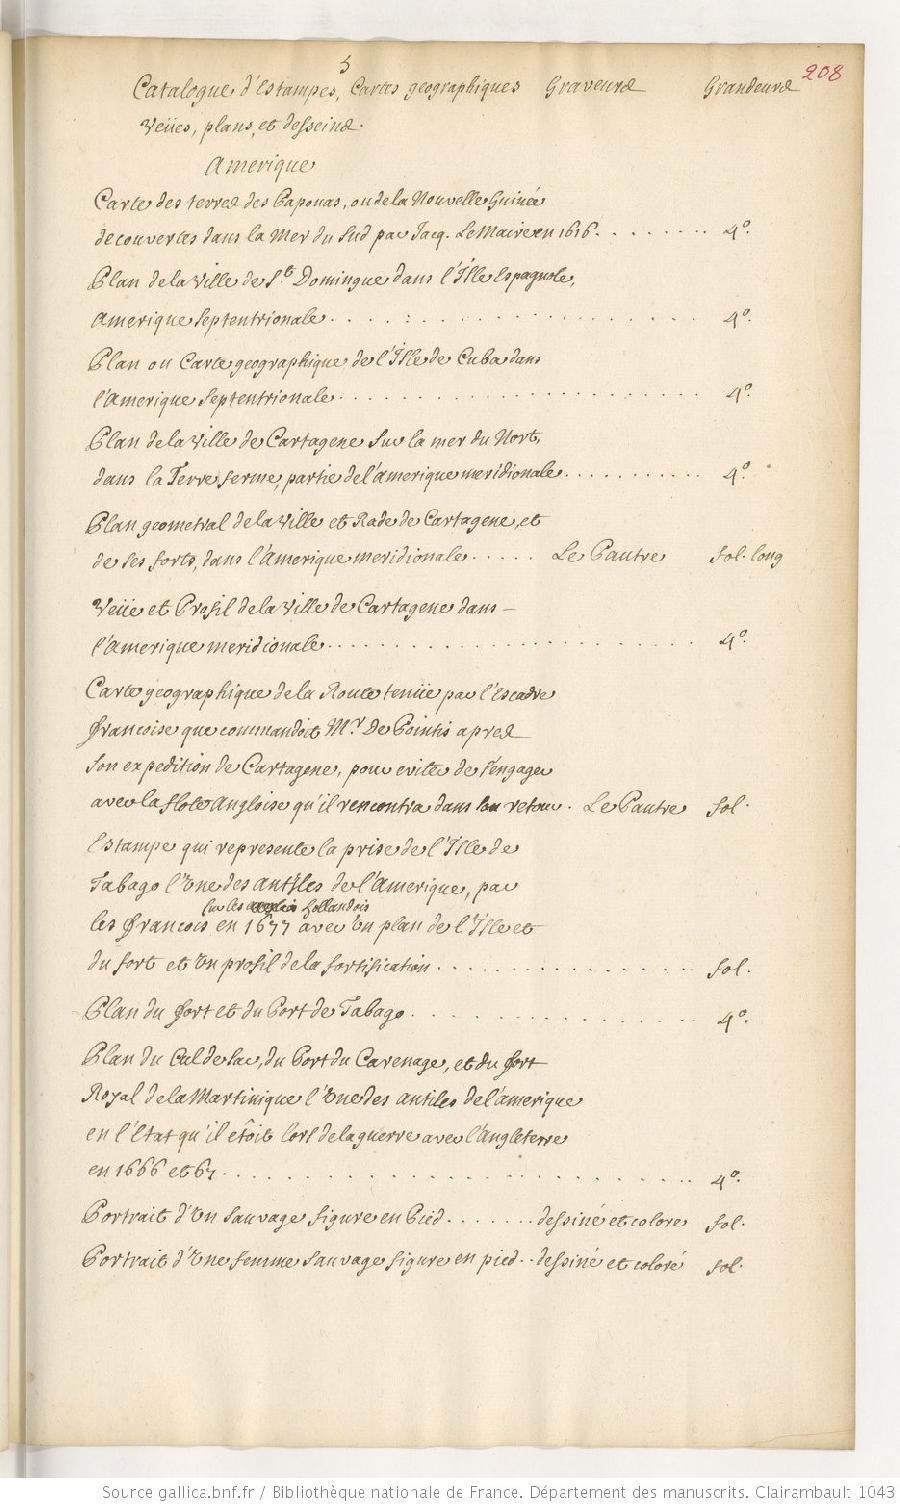 5
208
Catalogue d'Estampes, Cartes geographiques Graveurs Grandeurs
Veües, plans, et desseins.
Amerique
Carte des terres des Papouas, ou de la Nouvelle Guinée
decouvertes dans la Mer du Sud par Jacq. Le Maire en 1616. . . . . . . . 4º.
Plan de la Ville de St. Domingue dans l'Isle Espagnole,
Amerique Septentrionale. . . . . . . . . . . . . . . . . . 4º.
Plan ou Carte geographique de l'Isle de Cuba dans
l'Amerique Septentrionale. . . . . . . . . . . . . . . . . . 4º.
Plan de la Ville de Cartagene sur la mer du Nort,
dans la Terre ferme, partie de l'amerique meridionale. . . . . . . . . . 4º.
Plan geometral de la Ville et Rade de Cartagene, et
de ses forts, dans l'Amerique meridionale . . . . . Le Pautre fol. long
Veüe et Profil de la Ville de Cartagene dans –
l'Amerique meridionale. . . . . . . . . . . . . . . . . . 4º.
Carte geographique de la Route tenüe par l'Escadre
francoise que commandoit Mr. De Pointis apres
son expedition de Cartagene, pour eviter de s'engager
avec la flote Angloise qu'il rencontra dans son retour. Le Pautre fol.
Estampe qui represente la prise de l'Isle de
Tabago l'Une des antiles de l'Amerique, par
sur les hollandois
les francois en 1677 avec Un plan de l'Isle et
du fort et Un profil de la fortification. . . . . . . . . . . . . . fol.
Plan du fort et du Port de Tabago. . . . . . . . . . . . . . 4º.
Plan du Cul de Sac, du Port du Carenage, et du fort
Royal de la Martinique l'Une des antiles de l'amerique
en l'Etat qu'il etoit lors de la guerre avec l'Angleterre
en 1666 et 67. . . . . . . . . . . . . . . . . . . . . . . . 4º.
Portrait d'Un Sauvage figure en Pied. . . . . . . dessiné et coloré fol.
Portrait d'Une femme sauvage figure en pied. . dessiné et coloré fol.
Source gallica.bnf.fr / Bibliothèque nationale de France. Département des manuscrits. Clairambault 1043